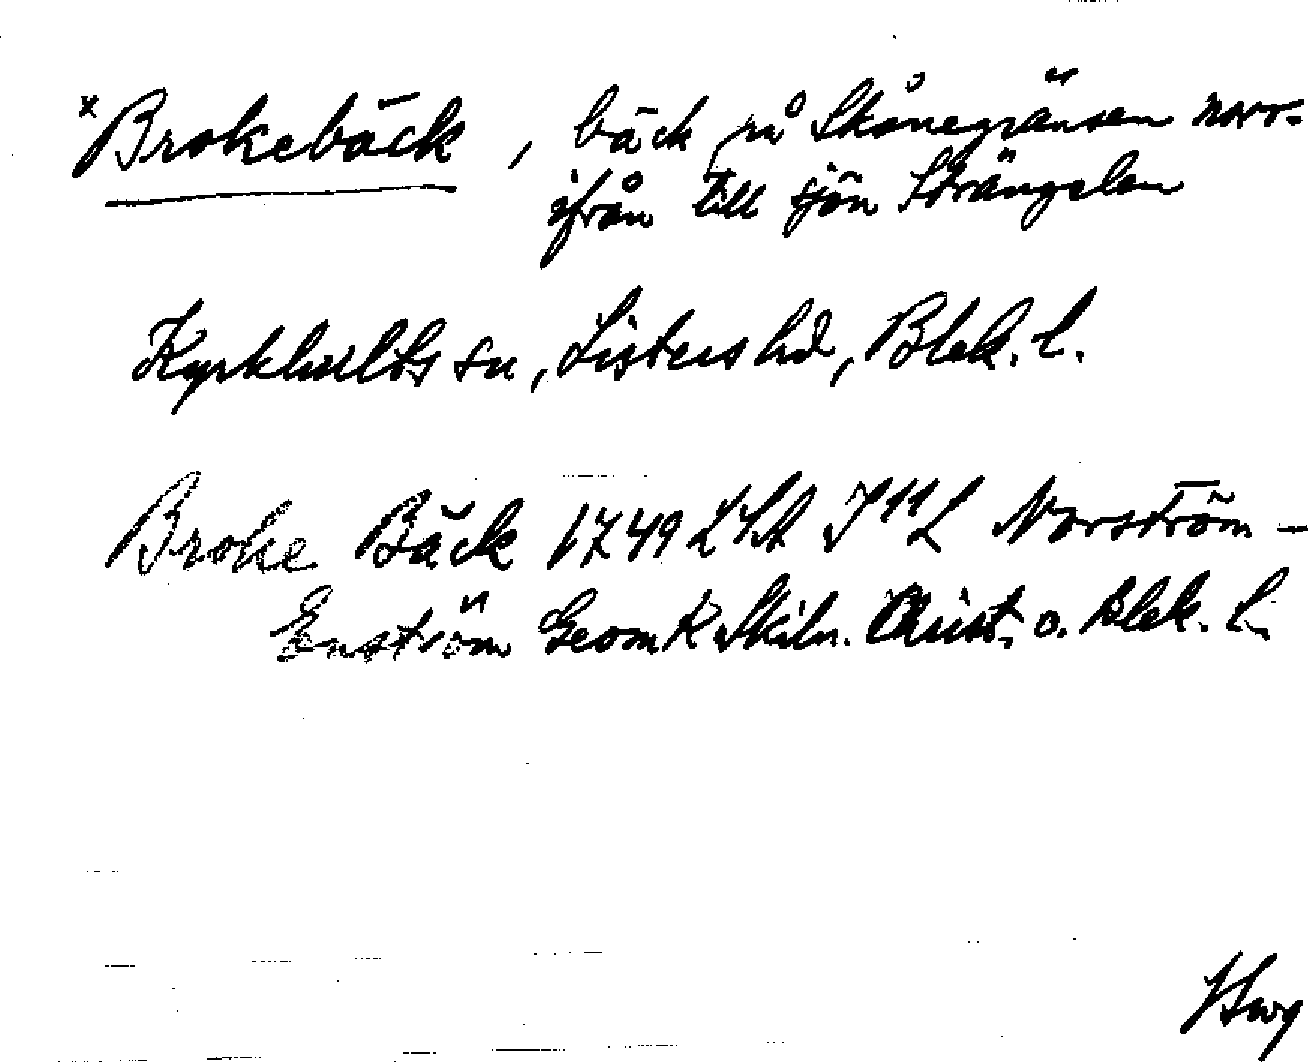 *Brokebäck, bäck på Skånegränsen norr-
ifrån till sjön Strängelen
Kyrkhults sn, Listers hd, Blek. l.
Broke Bäck 1749 LSA Norström -
Enström Geom K Skiln. Christ. o. Blek. L.